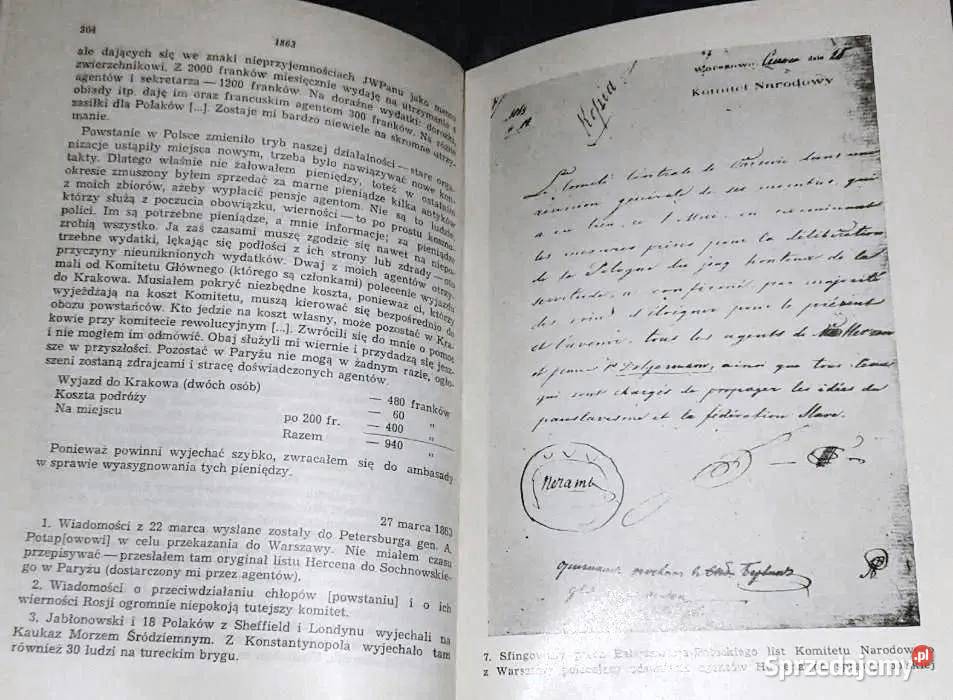 364
1863
ale dających się we znaki nieprzyjemnościach JWPanu jako memu
zwierzchnikowi. Z 2000 franków miesięcznie wydaję na utrzymanie
agentów i sekretarza — 1200 franków. Na doraźne wydatki: dorożki,
obiady itp. daję im oraz francuskim agentom 300 franków. Na różne
zasiłki dla Polaków [...]. Zostaje mi bardzo niewiele na skromne utrzy-
manie.
Powstanie w Polsce zmieniło tryb naszej działalności — stare orga-
nizacje ustąpiły miejsca nowym, trzeba było nawiązywać nowe kon-
takty. Dlatego właśnie nie żałowałem pieniędzy, toteż w ostatnim
okresie zmuszony byłem sprzedać za marne pieniądze kilka antyków
z moich zbiorów, ażeby wypłacić pensje agentom. Nie są to ludzie,
którzy służą z poczucia obowiązku, wierności — to po prostu koszno-
polici. Im są potrzebne pieniądze, a mnie informacje; za pieniądze
zrobią wszystko. Ja zaś czasami muszę zgodzić się nawet na niepo-
trzebne wydatki, lękając się podłości z ich strony lub zdrady — oto
przyczyny nieuniknionych wydatków. Dwaj z moich agentów otrzy-
mali od Komitetu Głównego (którego są członkami) polecenie wyjazdu
do Krakowa. Musiałem pokryć niezbędne koszta, ponieważ ci, którzy
wyjeżdżają na koszt Komitetu, muszą kierować się bezpośrednio do
obozu powstańców. Kto jedzie na koszt własny, może pozostać w Kra-
kowie przy komitecie rewolucyjnym [...]. Zwrócili się do mnie o pomoc
i nie mogłem im odmówić. Obaj służyli mi wiernie i przydadzą się jesz-
sze w przyszłości. Pozostać w Paryżu nie mogą w żadnym razie, ogło-
szeni zostaną zdrajcami i stracę doświadczonych agentów.
Wyjazd do Krakowa (dwóch osób) — 480 franków
Koszta podróży — 60 "
Na miejscu po 200 fr. — 400 "
Razem — 940 "
Ponieważ powinni wyjechać szybko, zwracałem się do ambasady
w sprawie wyasygnowania tych pieniędzy.
27 marca 1863
1. Wiadomości z 22 marca wysłane zostały do Petersburga gen. A.
Potap[owowi] w celu przekazania do Warszawy. Nie miałem czasu
przepisywać — przesłałem tam oryginał listu Hercena do Sochnowskie-
go w Paryżu (dostarczony mi przez agentów).
2. Wiadomości o przeciwdziałaniu chłopów [powstaniu] i o ich
wierności Rosji ogromnie niepokoją tutejszy komitet.
3. Jabłonowski i 18 Polaków z Sheffield i Londynu wyjechali na
Kaukaz Morzem Śródziemnym. Z Konstantynopola wyjechało tam
również 30 ludzi na tureckim brygu.
Warszawa dnia
Komitet Narodowy
Kopia
Le Comité Centrale de Varsovie dans une
réunion générale de ses membres, qui
a eu lieu, en examinant
les mesures prises pour la délibération
de la Pologne du joug honteux de la
servitude, a confirmé par majorité
des voix d'éloigner pour le présent
et l'avenir, tous les agents de Herzen
et ainsi que tous ceux
qui sont chargés de propager les idées du
panslavisme et la fédération Slave.
7. Sfingowany przez list Komitetu Narodowego
z Warszawy
Sprzedajemy.pl